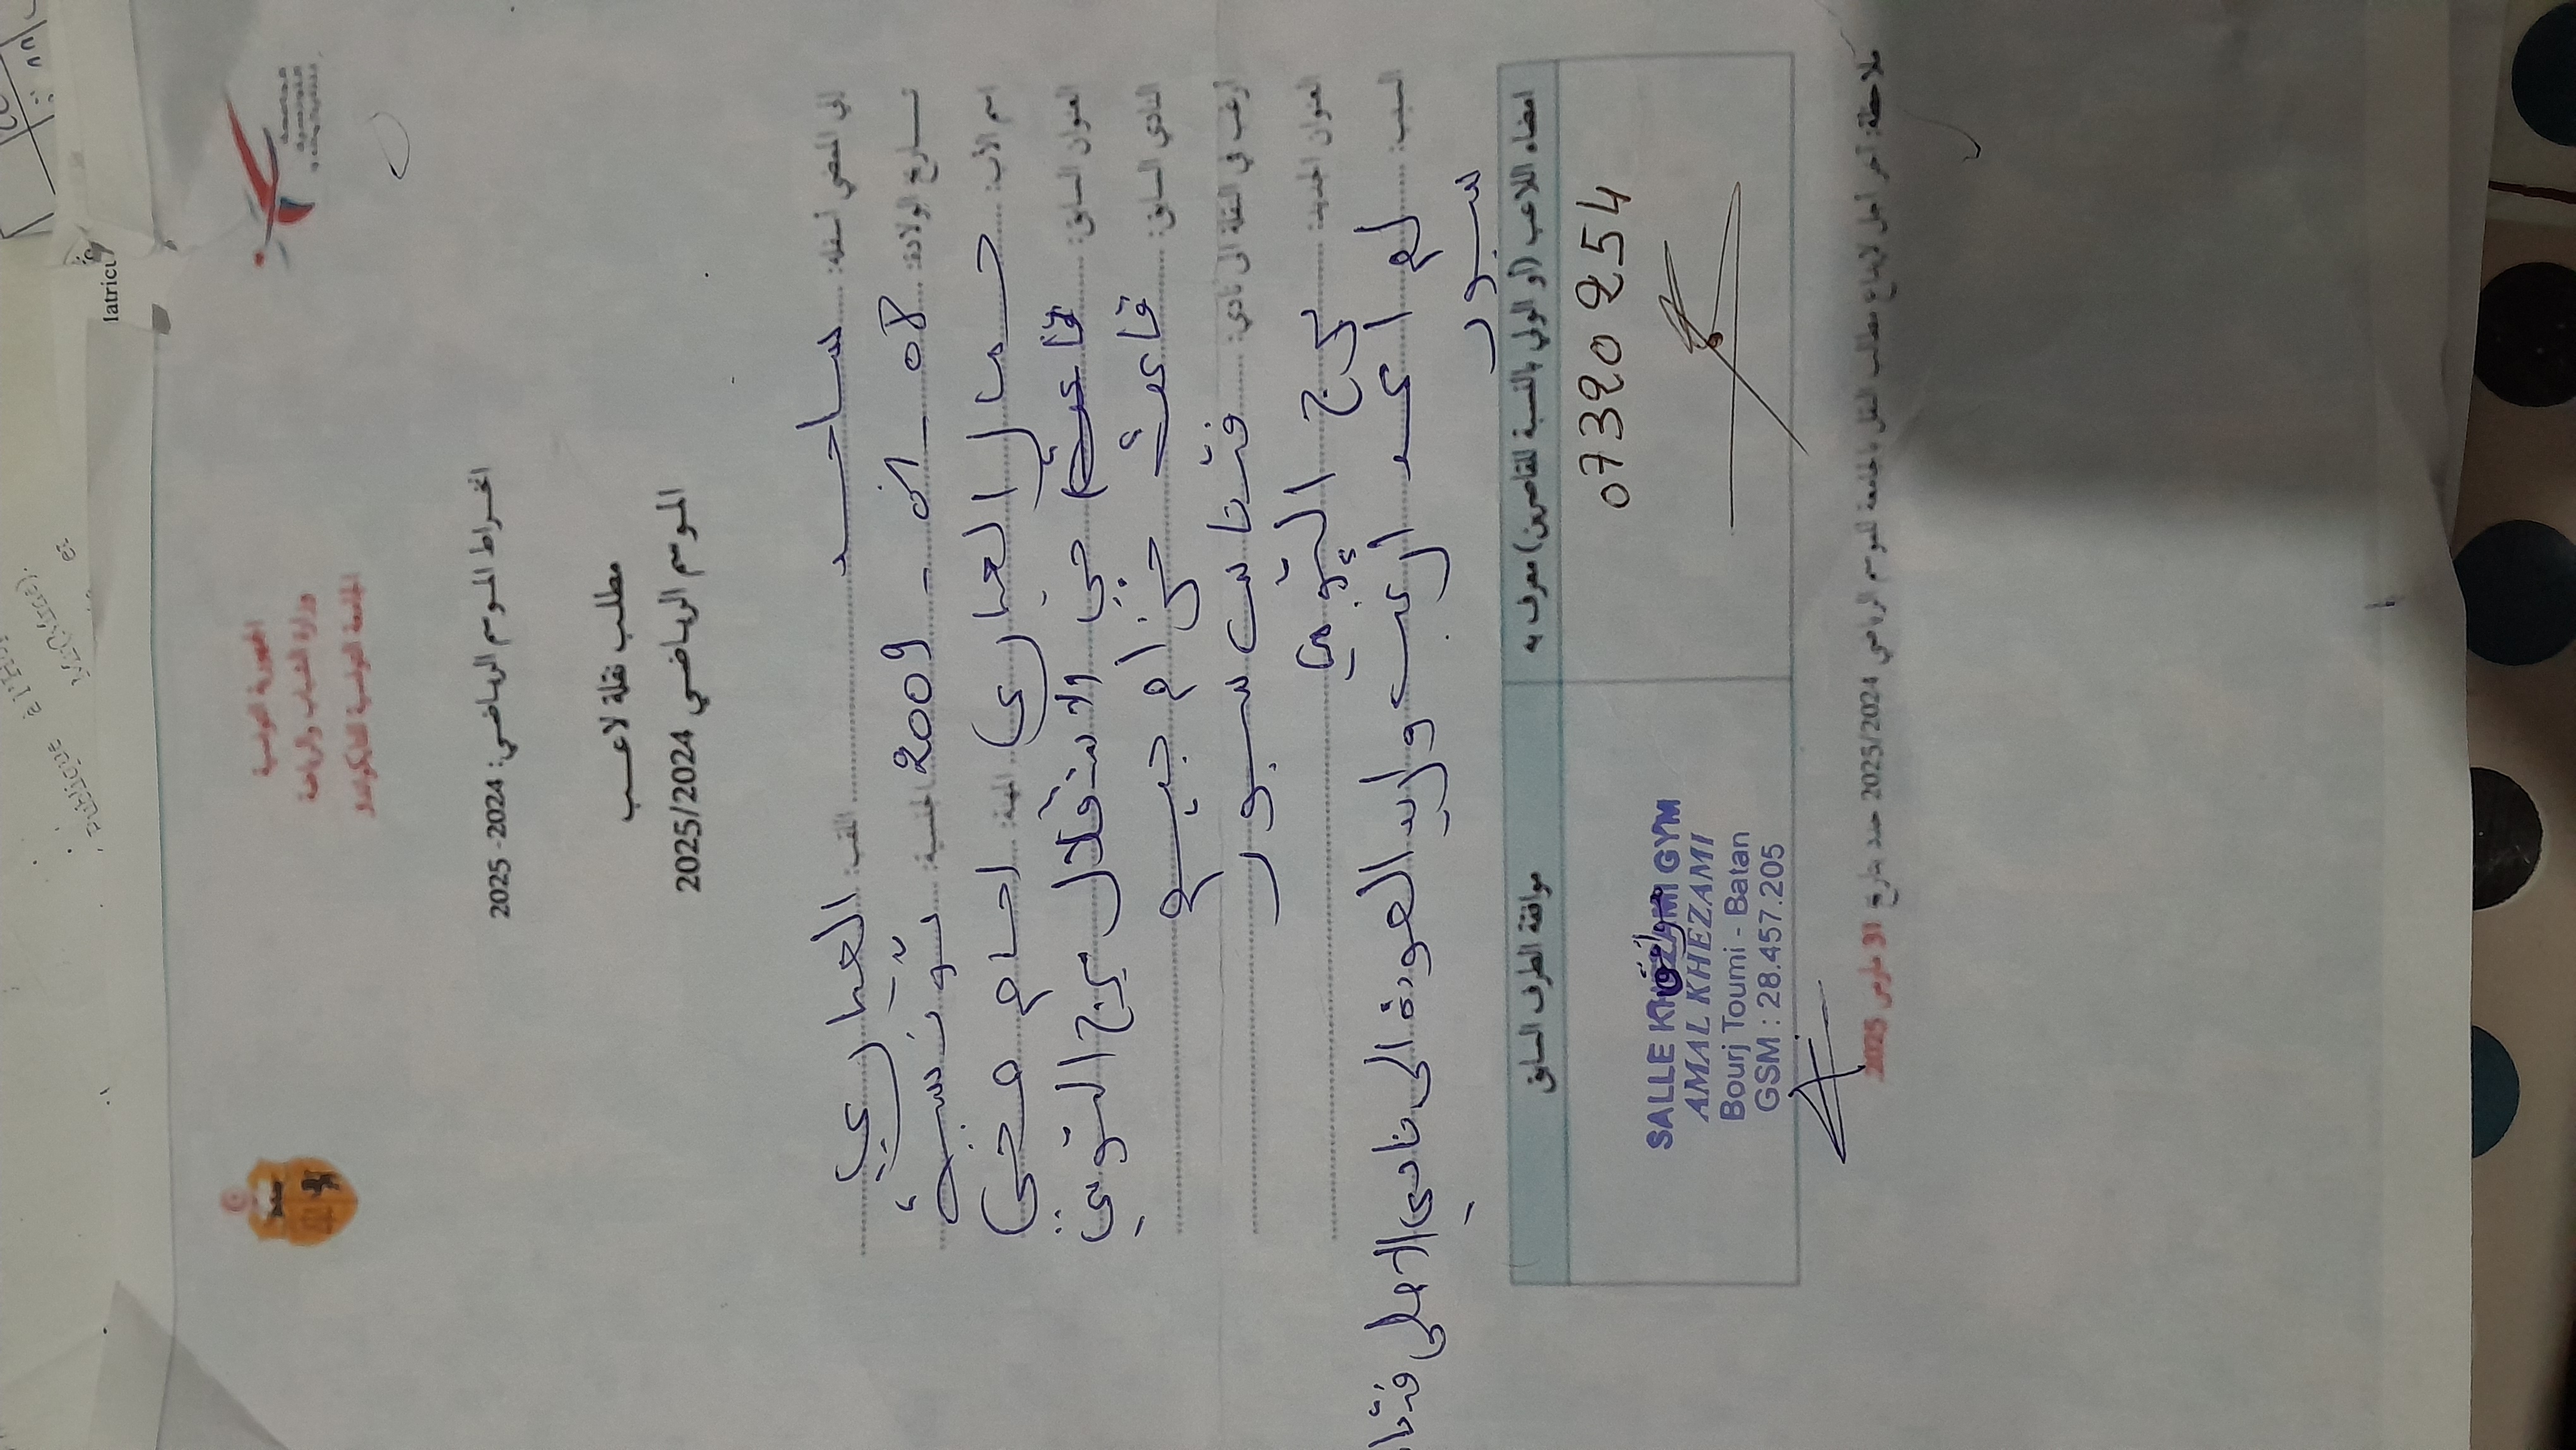 الجمهورية التونسية
وزارة الشباب والرياضة
الجامعة التونسية للتايكواندو
انخراط الموسم الرياضي: 2024-2025
مطلب نقلة لاعب
الموسم الرياضي 2025/2024
إني الممضي أسفله: ساجد اللقب: العياري
تاريخ الولادة: 08 _ 01 _ 2009 الجنسية: تونسية
اسم الأب: جمال العياري المهنة:
العنوان السابق: حي الاستقلال برج التومي
النادي السابق: قاعة خزامي جيم
أرغب في النقلة الى نادي: فتناس سبور
العنوان الجديد: برج التومي
السبب: لم اعد ارغب واريد العودة الى نادي الاصلي فتناس
سبور
امضاء اللاعب (أو الولي بالنسبة للقاصرين) معرف به
موافقة الطرف السابق
07320254
موافق
SALLE KHEZAMI GYM
AMAL KHEZAMI
Bourj Toumi - Batan
GSM : 28.457.205
ملاحظة: آخر أجل لإيداع مطالب النقل بالجامعة للموسم الرياضي 2025/2024 حدد بتاريخ 31 مارس 2025